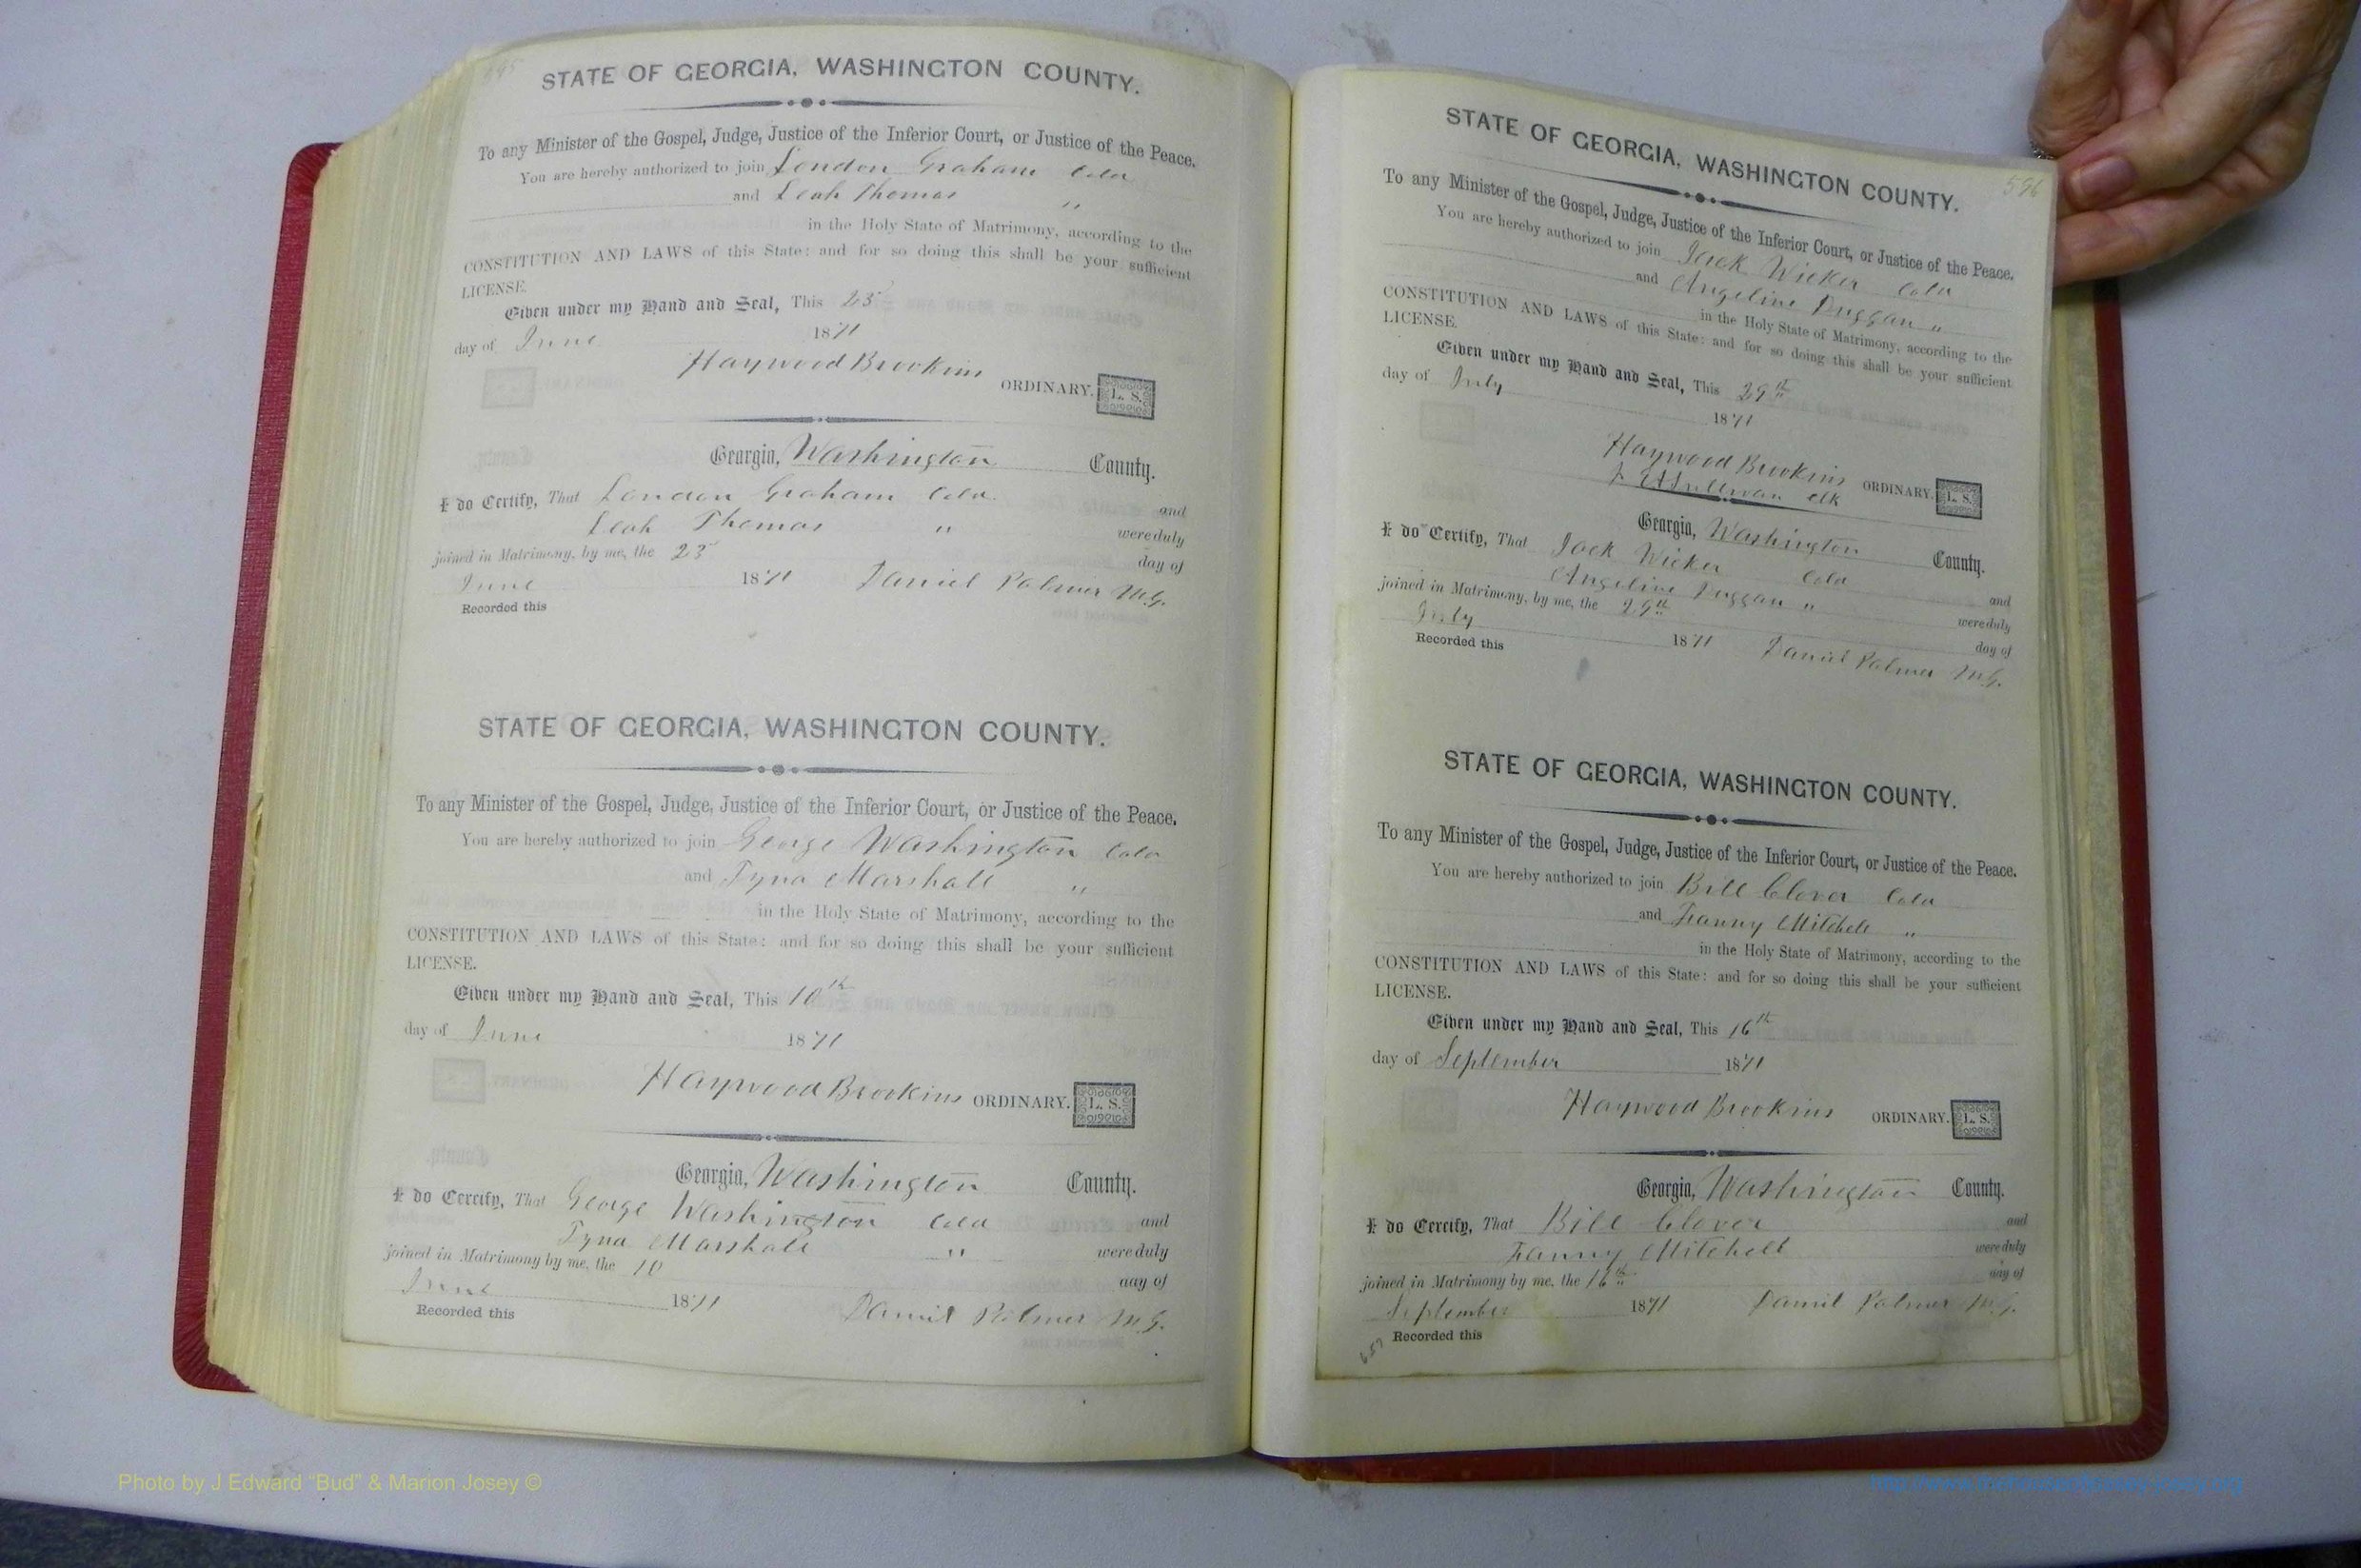 595
STATE OF GEORGIA, WASHINGTON COUNTY.
To any Minister of the Gospel, Judge, Justice of the Inferior Court, or Justice of the Peace.
You are hereby authorized to join London Graham Cold
and Leah Thomas "
in the Holy State of Matrimony, according to the
CONSTITUTION AND LAWS of this State: and for so doing this shall be your sufficient
LICENSE.
Given under my Hand and Seal, This 23
day of June 1871
Haywood Brookins ORDINARY. L. S.
Georgia, Washington County.
I do Certify, That London Graham Cold. and
Leah Thomas " were duly
joined in Matrimony, by me, the 23 day of
June 1871 Daniel Palmer M.G.
Recorded this
STATE OF GEORGIA, WASHINGTON COUNTY.
To any Minister of the Gospel, Judge, Justice of the Inferior Court, or Justice of the Peace.
You are hereby authorized to join George Washington Cold
and Tyna Marshall "
in the Holy State of Matrimony, according to the
CONSTITUTION AND LAWS of this State: and for so doing this shall be your sufficient
LICENSE.
Given under my Hand and Seal, This 10th
day of June 1871
Haywood Brookins ORDINARY. L. S.
Georgia, Washington County.
I do Certify, That George Washington Cold and
Tyna Marshall " were duly
joined in Matrimony by me, the 10 day of
June 1871 Daniel Palmer M.G.
Recorded this
596
STATE OF GEORGIA, WASHINGTON COUNTY.
To any Minister of the Gospel, Judge, Justice of the Inferior Court, or Justice of the Peace.
You are hereby authorized to join Jack Wicker Cold
and Angeline Duggan "
in the Holy State of Matrimony, according to the
CONSTITUTION AND LAWS of this State: and for so doing this shall be your sufficient
LICENSE.
Given under my Hand and Seal, This 29th
day of July 1871
Haywood Brookins ORDINARY. L. S.
Sullivan clk
Georgia, Washington County.
I do Certify, That Jack Wicker Cold and
Angeline Duggan " were duly
joined in Matrimony, by me, the 29th day of
July 1871 Daniel Palmer M.G.
Recorded this
STATE OF GEORGIA, WASHINGTON COUNTY.
To any Minister of the Gospel, Judge, Justice of the Inferior Court, or Justice of the Peace.
You are hereby authorized to join Bill Clover Cold
and Fanny Mitchell "
in the Holy State of Matrimony, according to the
CONSTITUTION AND LAWS of this State: and for so doing this shall be your sufficient
LICENSE.
Given under my Hand and Seal, This 16th
day of September 1871
Haywood Brookins ORDINARY. L. S.
Georgia, Washington County.
I do Certify, That Bill Clover and
Fanny Mitchell were duly
joined in Matrimony by me, the 16th day of
September 1871 Daniel Palmer M.G.
Recorded this
657
Photo by J Edward “Bud” & Marion Josey ©